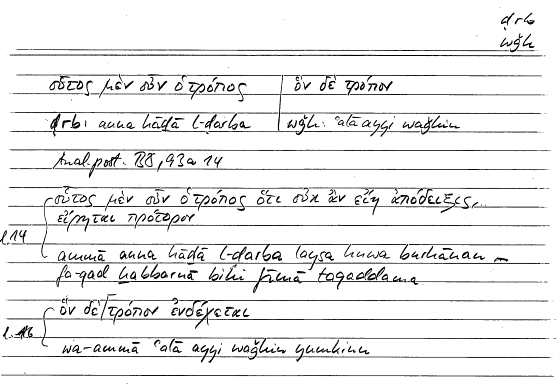 ḍrb
wǧh
οὗτος μὲν οὖν ὁ τρόπος | ὃν δὲ τρόπον
ḍrb: anna hāḏā l-ḍarba | wǧh: ʿalā ayyi waǧhin
Anal. post. B8, 93a 14
οὗτος μὲν οὖν ὁ τρόπος ὅτι οὐκ ἂν εἴη ἀπόδειξις...
εἴρηται πρότερον
l.14
ammā anna hāḏā l-ḍarba laysa huwa burhānan —
fa-qad ḫabbarnā bihi fīmā taqaddama
ὃν δὲ τρόπον ἐνδέχεται
wa-ammā ʿalā ayyi waǧhin yumkinu